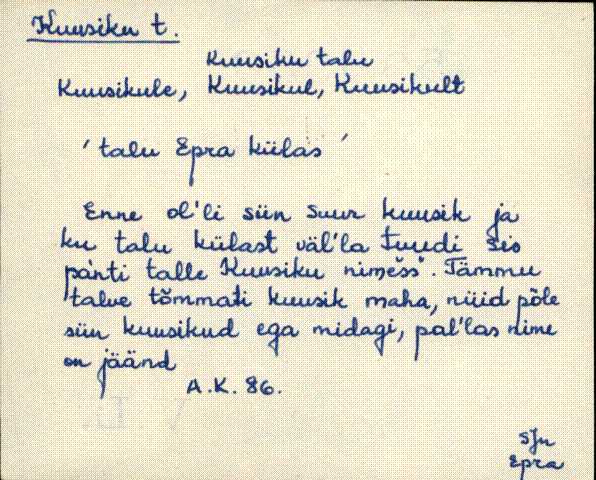 Kuusiku t.
Kuusiku talu
Kuusikule, Kuusikul, Kuusikult
' talu Epra külas '
Enne ol'li siin suur kuusik ja
ku talu külast väl'la tuudi sis
pańti talle Kuusiku nimess". Tämmu
talve tõmmati kuusik maha, nüid põle
siin kuusikud ega midagi, pal'las nime
on jäänd
A.K. 86.
SJn
Epra